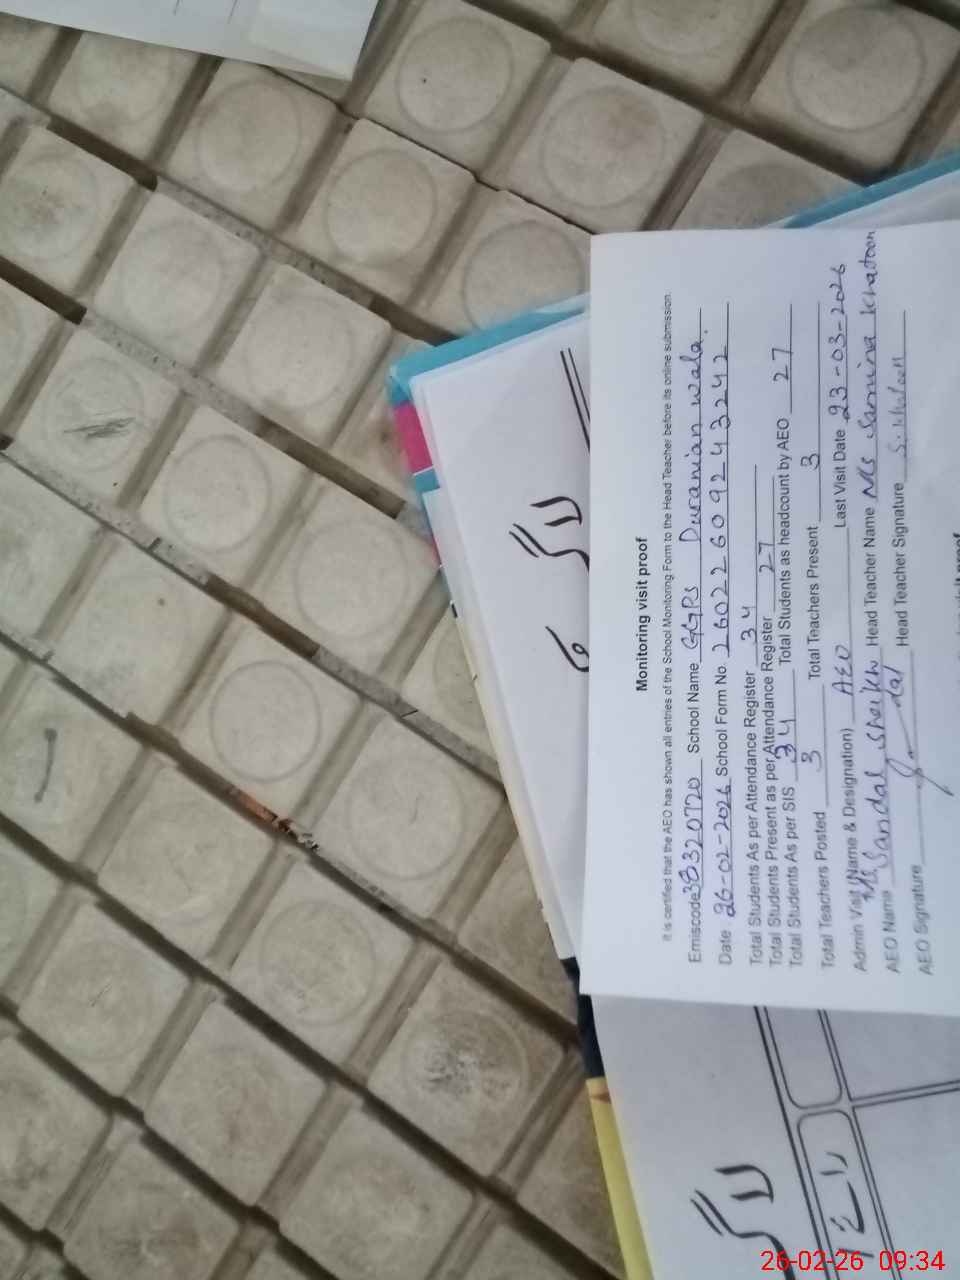 Monitoring visit proof
It is certified that the AEO has shown all entries of the School Monitoring Form to the Head Teacher before its online submission.
Emiscode 38320720 School Name GGPS Duranian wala.
Date 26-02-2026 School Form No. 26022609243242
Total Students As per Attendance Register 34
Total Students Present as per Attendance Register 27
Total Students As per SIS 34 Total Students as headcount by AEO 27
Total Teachers Posted 3 Total Teachers Present 3
Admin Visit (Name & Designation) AEO Last Visit Date 23-03-2026
AEO Name Ms Sandal Sheikh Head Teacher Name Ms Samina Khatoon
AEO Signature Head Teacher Signature
26-02-26 09:34